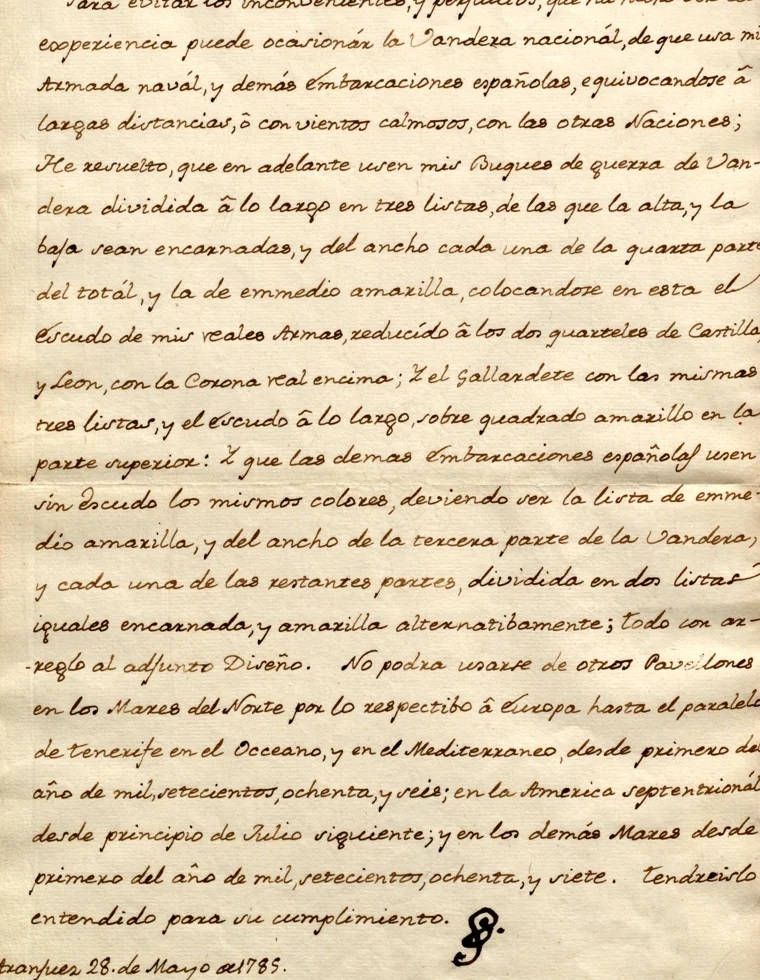 Para evitar los inconvenientes, y perjuicios, que ha hecho ver la
experiencia puede ocasionár la Vandera nacionál, de que usa mi
Armada navál, y demás Embarcaciones españolas, equivocandose â
largas distancias, ô con vientos calmosos, con las otras Naciones;
He resuelto, que en adelante usen mis Buques de guerra de Van-
dera dividida â lo largo en tres listas, de las que la alta, y la
baja sean encarnadas, y del ancho cada una de la quarta parte
del totál, y la de emmedio amarilla, colocandose en esta el
Escudo de mis reales Armas, reducído â los dos quarteles de Castilla,
y Leon, con la Corona real encima; Y el Gallardete con las mismas
tres listas, y el Escudo â lo largo, sobre quadrado amarillo en la
parte superior: Y que las demas Embarcaciones españolas usen
sin Escudo los mismos colores, deviendo ser la lista de emme-
dio amarilla, y del ancho de la tercera parte de la Vandera,
y cada una de las restantes partes, dividida en dos listas
iguales encarnada, y amarilla alternatibamente; todo con ar-
-reglo al adjunto Diseño. No podra usarse de otros Pavellones
en los Mares del Norte por lo respectibo â Europa hasta el paralelo
de tenerife en el Occeano, y en el Mediterraneo, desde primero del
año de mil, setecientos, ochenta, y seis; en la America septentrionál
desde principio de Julio siguiente; y en los demás Mares desde
primero del año de mil, setecientos, ochenta, y siete. Tendreislo
entendido para su cumplimiento.
Aranjuez 28. de Mayo de 1785.